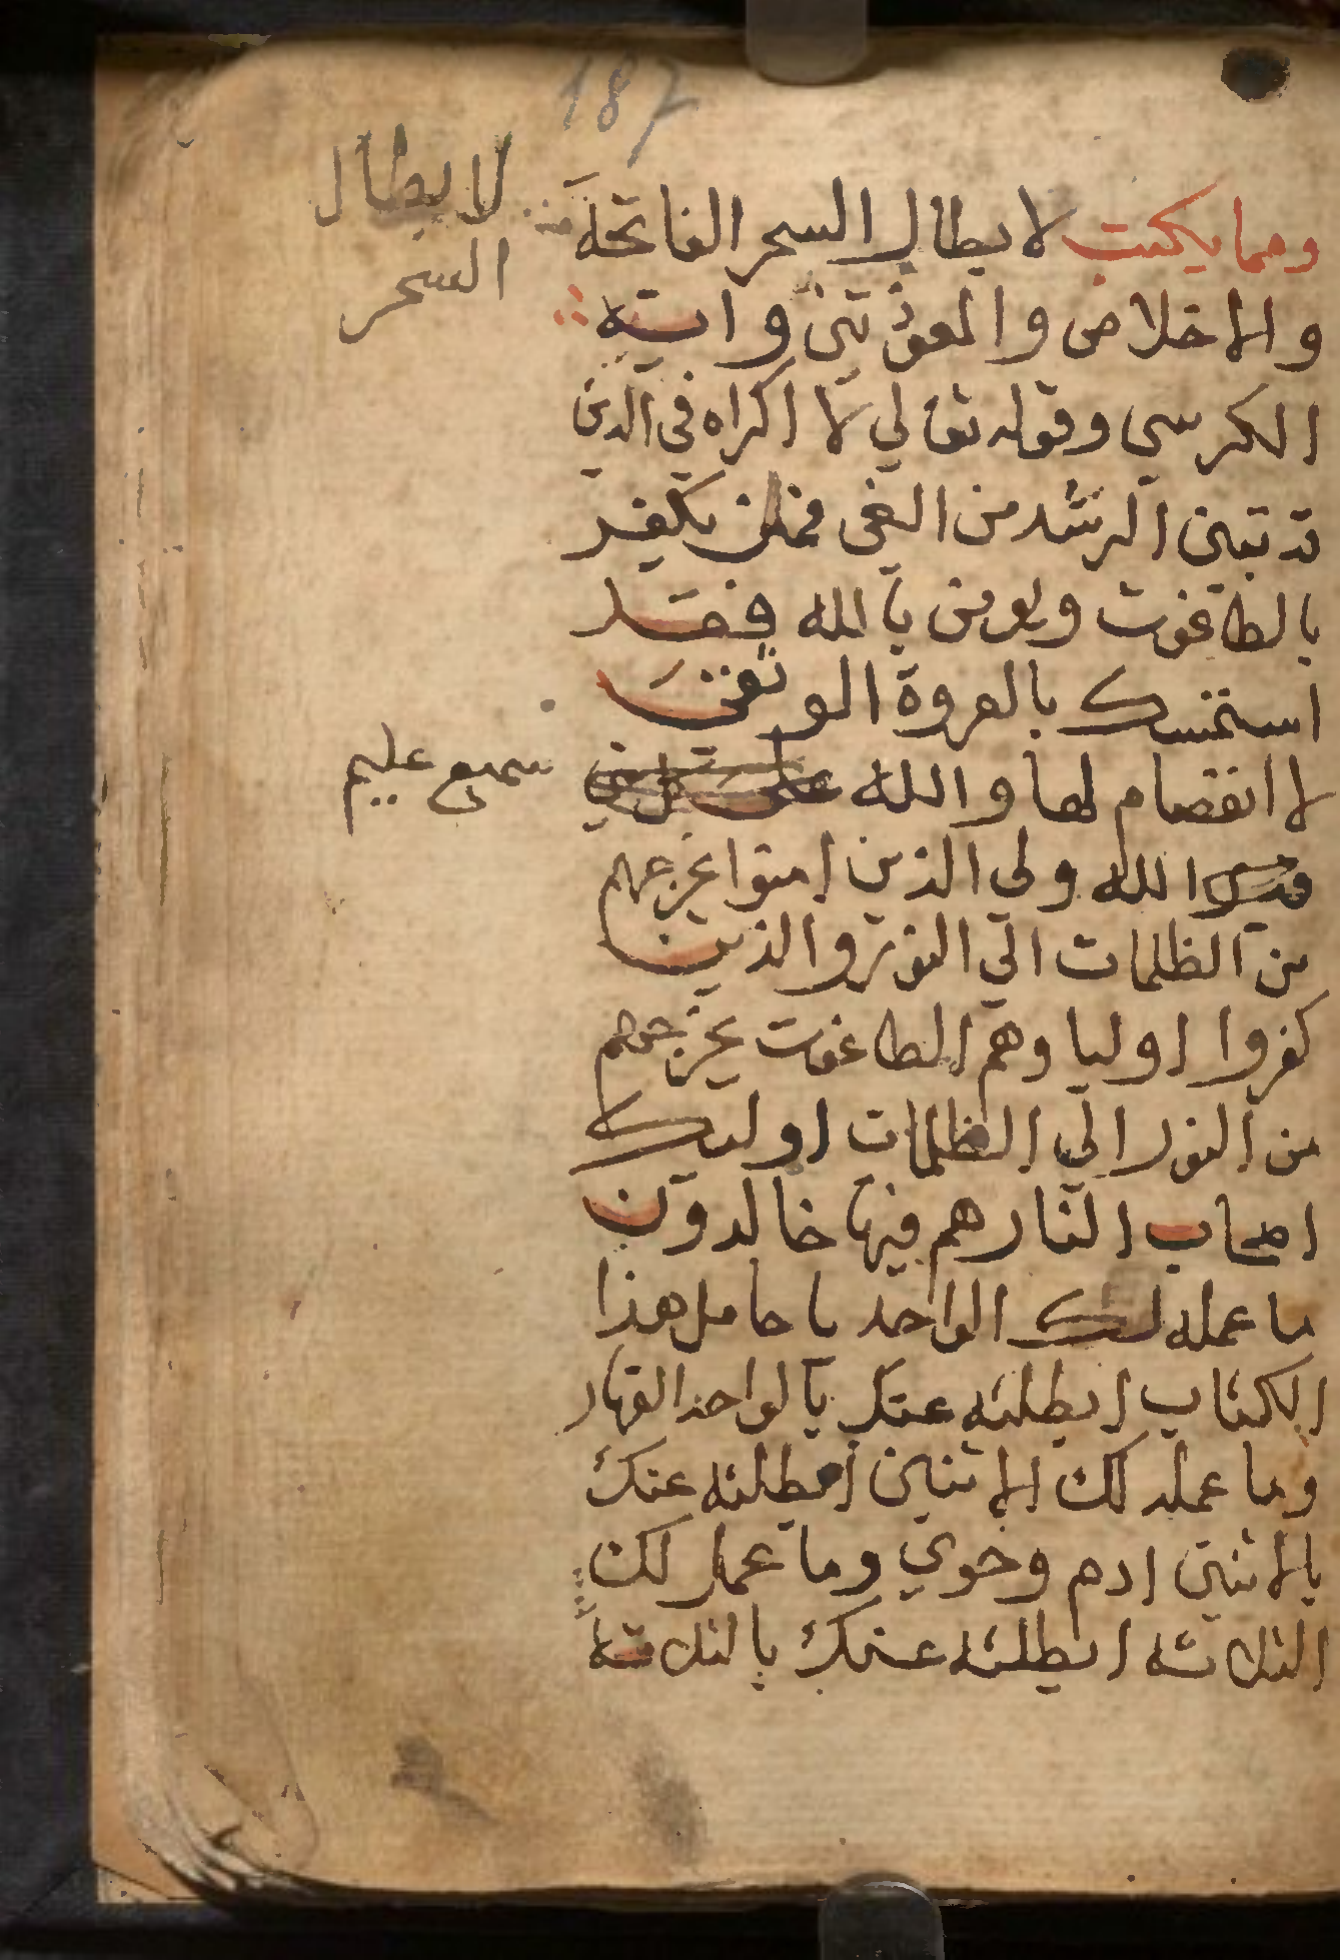 187
لابطال
السحر
ومما يكتب لابطال السحر الفاتحة
والاخلاص والمعوذتين واية
الكرسي وقوله تعالي لا اكراه في الدين
قد تبين الرشد من الغي فمن يكفر
بالطاغوت ويومن بالله فقد
استمسك بالعروة الوثقى
لا انفصام لها والله سميع عليم
الله ولي الذين امنوا يخرجهم
من الظلمات الي النور والذين
كفروا اوليا وهم الطاغوت يخرجهم
من النور الي الظلمات اوليك
اصحاب النار هم فيها خالدون
ما عمله لك الواحد يا حامل هذا
الكتاب ابطلته عنك بالواحد القهار
وما عمله لك الاثنين ابطلته عنك
بالاثنين ادم وحوي وما عمل لك
الثلاثه ابطلته عنك بالثلاثة